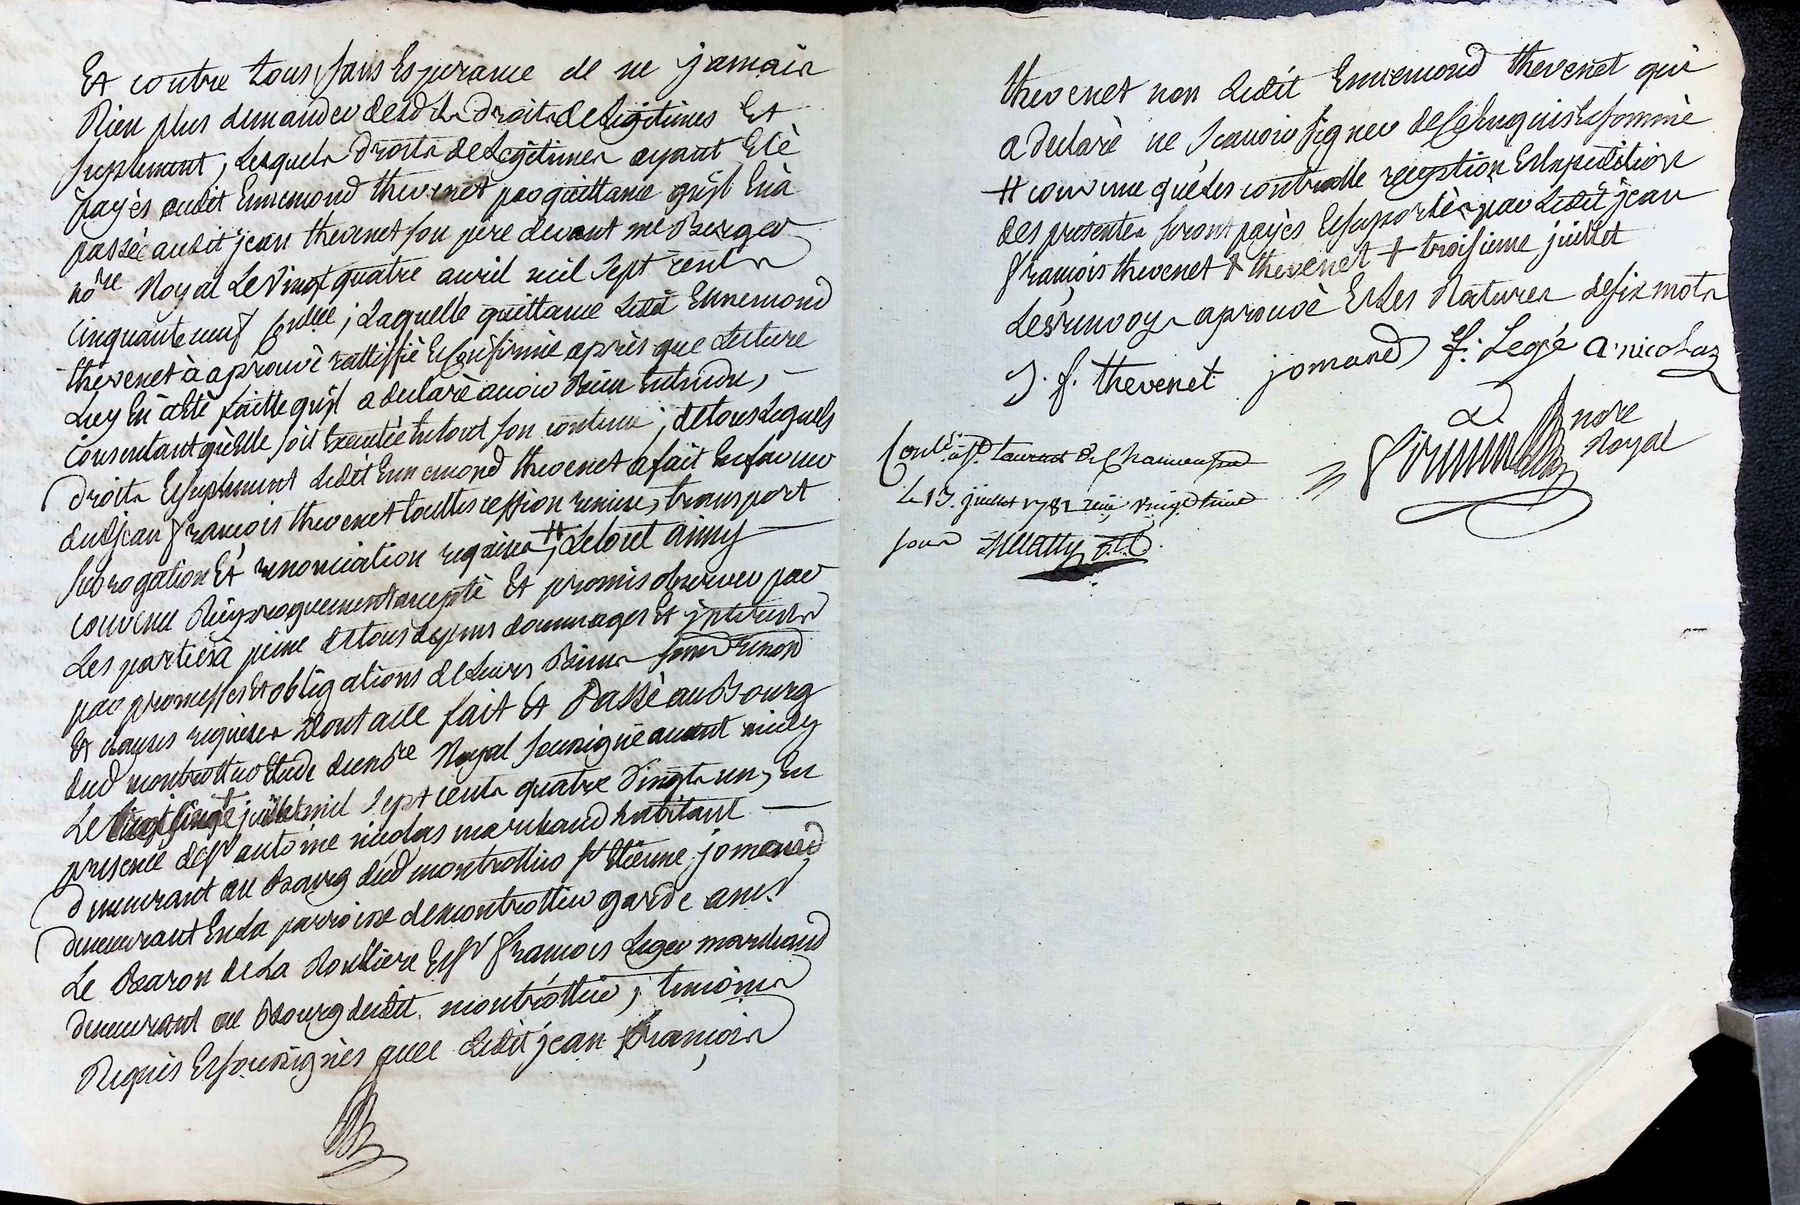 Et contre tous, sans Esperance de ne jamais
Rien plus demander desd ts droits de Legitimes Et
suplement, Lesquels droits de Legitimes ayant Eté
payès audit Ennemond thevenet par quittance qu'il En à
passée audit jean thevenet son pere devant me Berger
nore Royal Le Vingt quatre avril mil sept cents
Cinquante neuf ; Laquelle quittance Ledit Ennemond
thevenet à aprouvè rattiffiè Et Confirmè après que Lecture
Luy En à Eté faitte qu'il a declarè avoir Bien Entendu,
consentant qu'elle soit Executée En tout son contenu ; de tous Lesquels
droits Et suplement Ledit Ennemond thevenet a fait En faveur
dud jean François thevenet touttes cession remise, transport
subrogation Et renonciation requises, # Le tout ainsy
convenu Reciproquement acceptè Et promis observer par
Les parties à peine de tous depens dommages Et interests
par promesses Et obligations de Leurs Biens
Et clauses requises Dont acte fait Et Passè au Bourg
dud montrottier Etude du nore Royal soussignè avant midy
Le juillet mil sept cents quatre Vingts un, En
presence de sr antoine nicolas marchand habitant
demeurant au Bourg dud montrottier sr Etienne jomand
demeurant En La parroisse de montrottier garde
Le Baron de La Roulliere Et sr François Leger marchand
demeurant au Bourg dudit montrottier, temoins
Requis Et soussignès avec Ledit jean François
thevenet non Ledit Ennemond thevenet qui
a declarè ne scavoir signer de ce Enquis Et sommè
# convenu que Les controlle reception Et Expedition
des presentes seront payès Et suportès par Ledit jean
François thevenet + thevenet + troisieme juillet
Les renvoys aprouvè Et Les Ratures de six mots
J. f. thevenet jomand f. Legé a. nicolas
nore
Royal
Contlé à St Laurent de Chamousset
le 13 juillet 1781